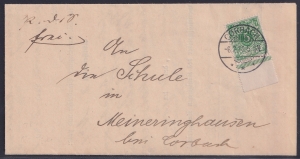 frei.
An
die Schule
in
Meineringhausen
bei Corbach